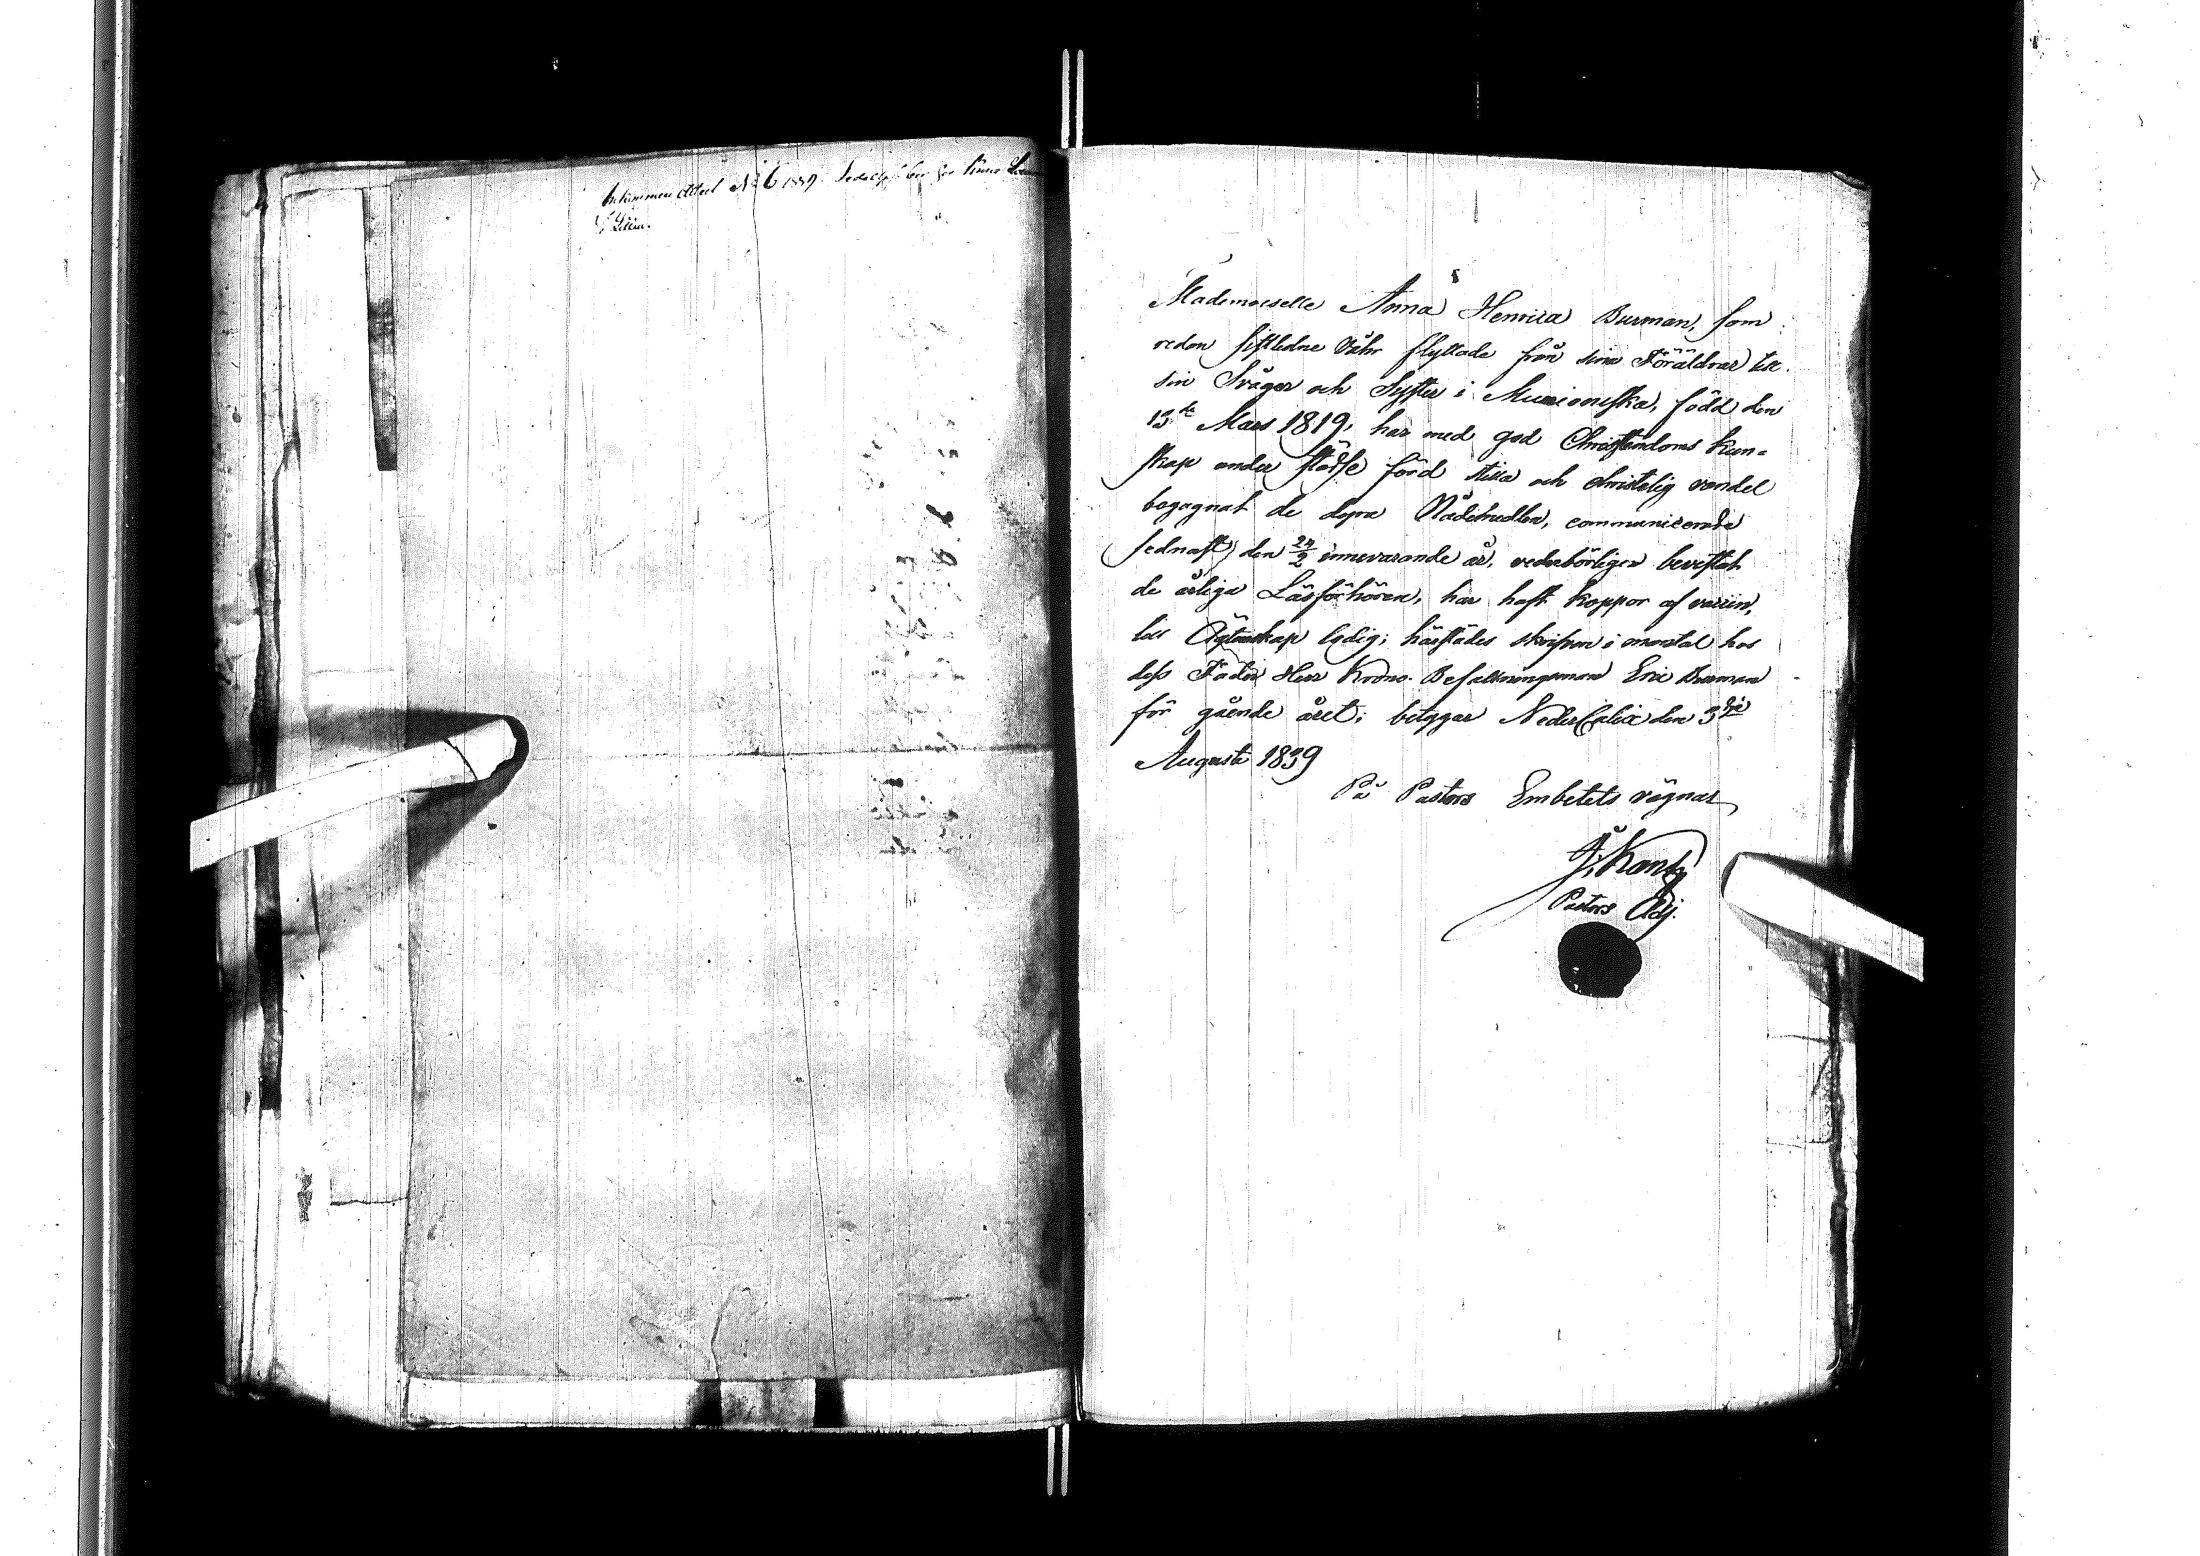 Inkommen Attest No 6 1839.
Mademoiselle Anna Henrica Burman, som
redan sistledne Våhr flyttade från sina Föräldrar til
sin Svåger och Syster i Muonioniska, född den
13de Mars 1819, har med god Christendoms kun-
skap under städse förd stilla och christelig vandel
begagnat de dyra Nådemedlen, communicerade
sednast den 24/2 innevarande år, vederbörligen bevistat
de årliga Läsförhören, har haft koppor af vaccin,
till Ägtenskap ledig; härstädes skrifven i mantal hos
dess Fader Herr Krono-Befallningsman Eric Burman
för gående året; betygar NederCalix den 3dje
Augusti 1839
På Pastors Embetets vägnar
Pastors Adj.